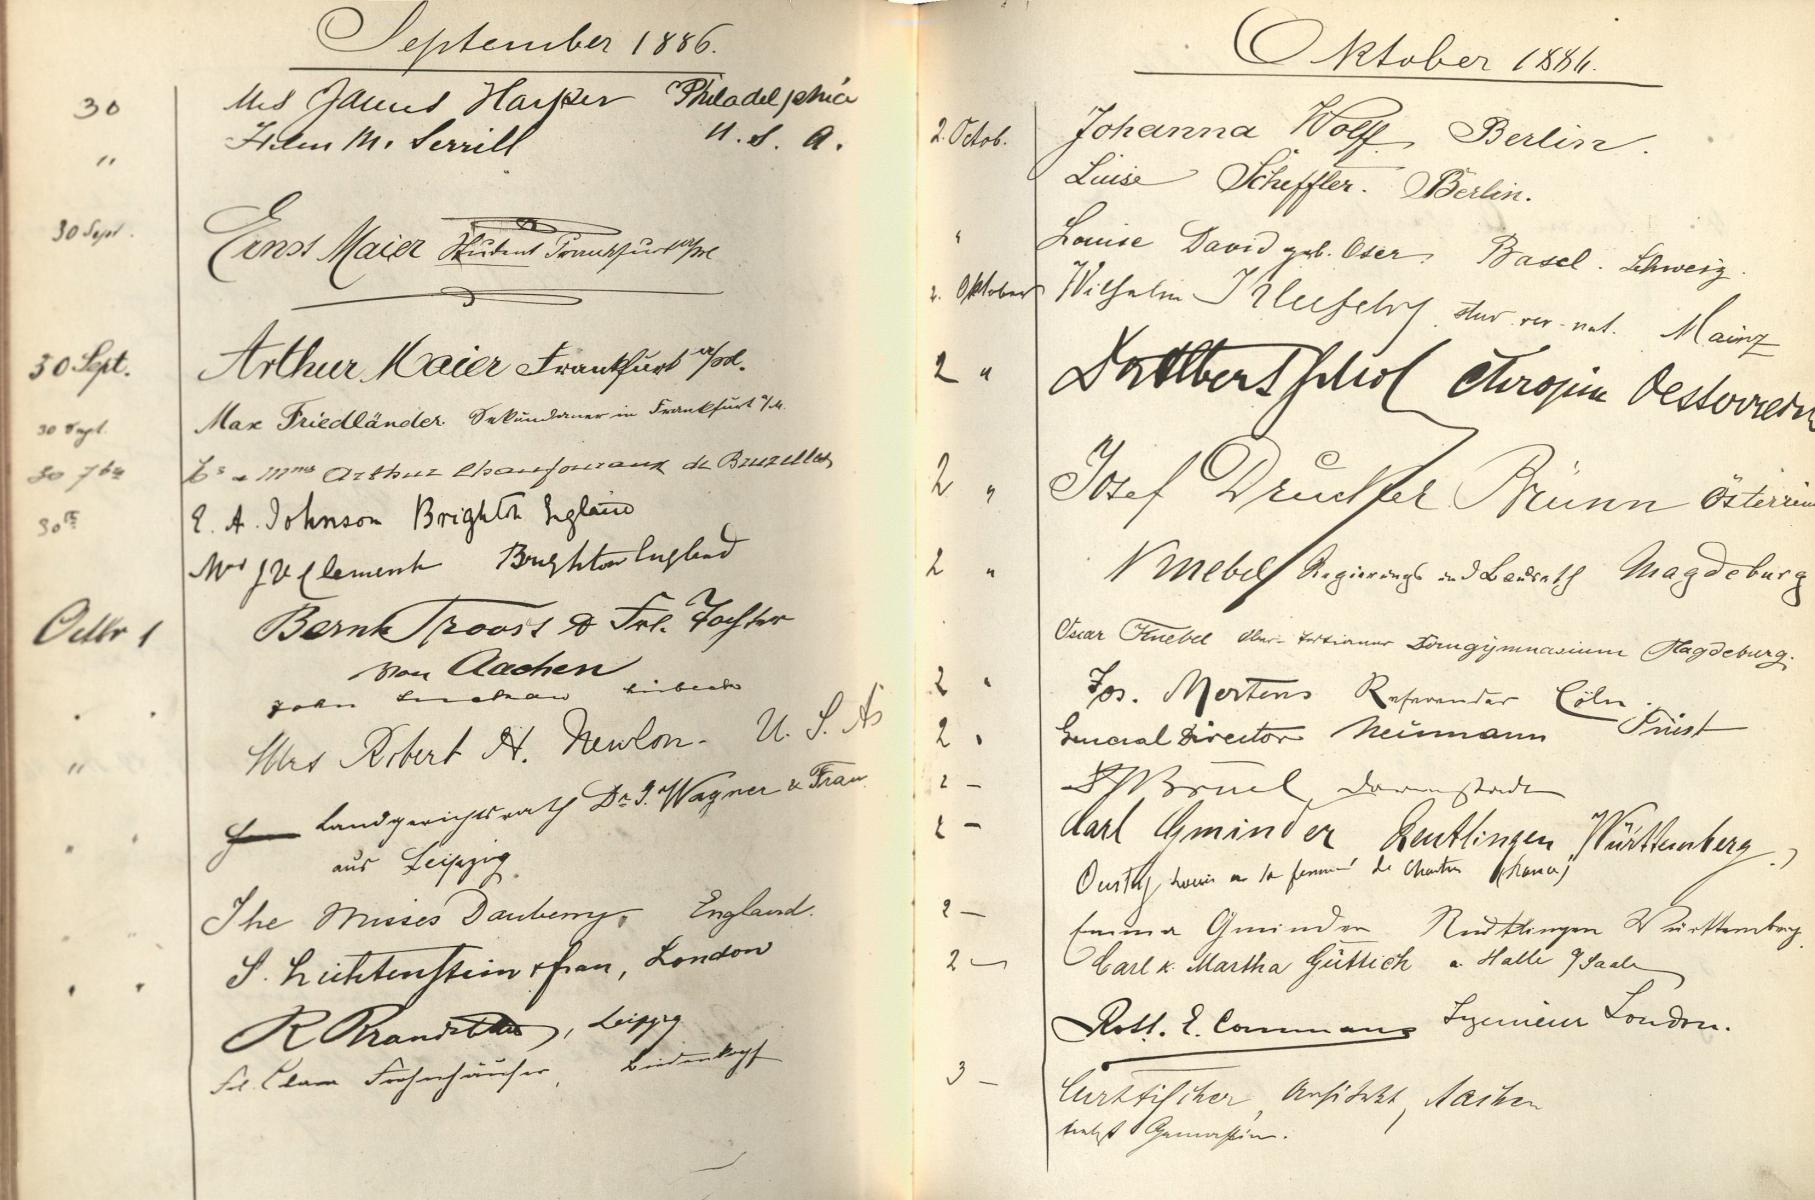 September 1886.
30 Mrs James Harper Philadelphia
" Helen M. Serrill U. S. A.
30 Sept. Ernst Maier Student Frankfurt a/M
30 Sept. Arthur Maier Frankfurt a/M.
30 Sept. Max Friedländer Sekundaner in Frankfurt a/M.
30 7bre Mme Arthur de Bruxelles
30th E. A. Johnson Brighton England
Mrs J V Clement Brighton England
Octbr 1 Bernh Troost & Frl. Tochter
von Aachen
John
" Mrs Robert H. Newlon. U. S. As
Landgerichtsrath Dr. J. Wagner & Frau
aus Leipzig.
The Misses Daubeny, England.
S. Lichtenstein & frau, London
R Brandstetter, Leipzig
Frl. Clara Frohnhäuser, Biedenkopf
Oktober 1886.
2. Octob. Johanna Wolff Berlin.
Luise Scheffler. Berlin.
" Louise David geb. Oser Basel. Schweiz.
2. Oktober Wilhelm stud. rer. nat. Mainz
2 " Oesterreich
2 " Josef Drucker Brünn Österreich
2 " Knebel Regierungs und Baurath Magdeburg
Oscar Knebel Ober-Tertianer Domgymnasium Magdeburg.
2 " Jos. Mertens Referendar Cöln.
2 " General Director Neumann Triest
2 - Brüel, Darmstadt
2 - Carl Gminder Reutlingen Württemberg.
Louis et sa femme de Chartres (France)
2 - Emma Gminder Reutlingen Württemberg.
2 - Carl u. Martha Güttich a. Halle a/Saale
Robt. E. Commans Ingenieur London.
3 - Curt Fischer, Architekt, Aachen